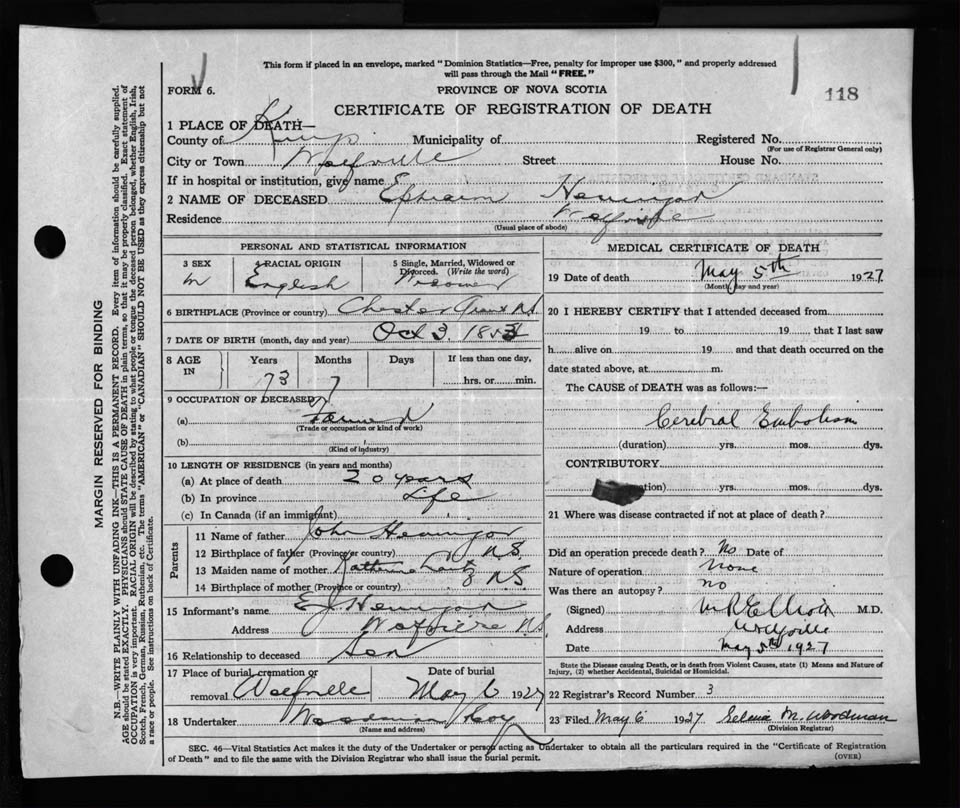 This form if placed in an envelope, marked "Dominion Statistics—Free, penalty for improper use $300," and properly addressed
will pass through the Mail "FREE."
118
FORM 6.
PROVINCE OF NOVA SCOTIA
CERTIFICATE OF REGISTRATION OF DEATH
1 PLACE OF DEATH—
County of Kings Municipality of Registered No.
(For use of Registrar General only)
City or Town Wolfville Street House No.
If in hospital or institution, give name
2 NAME OF DECEASED Ephraim Hennigar
Residence Wolfville
(Usual place of abode)
PERSONAL AND STATISTICAL INFORMATION
3 SEX 4 RACIAL ORIGIN 5 Single, Married, Widowed or
Divorced. (Write the word)
m English Widower
6 BIRTHPLACE (Province or country) Chester N.S.
7 DATE OF BIRTH (month, day and year) Oct 3. 1853
8 AGE IN Years Months Days If less than one day,
hrs. or min.
73 7
9 OCCUPATION OF DECEASED
(a)
(Trade or occupation or kind of work)
(b)
(Kind of industry)
10 LENGTH OF RESIDENCE (in years and months)
(a) At place of death 20 years
(b) In province Life
(c) In Canada (if an immigrant)
Parents
11 Name of father John Hennigar
12 Birthplace of father (Province or country) N.S.
13 Maiden name of mother Katherine
14 Birthplace of mother (Province or country) N.S.
15 Informant's name E J Hennigar
Address Wolfville N.S
16 Relationship to deceased Son
17 Place of burial, cremation or Date of burial
removal Wolfville May 6 1927
18 Undertaker Woodman
(Name and address)
MEDICAL CERTIFICATE OF DEATH
19 Date of death May 5th 1927
(Month, day and year)
20 I HEREBY CERTIFY that I attended deceased from
19 to 19 that I last saw
h alive on 19 and that death occurred on the
date stated above, at m.
The CAUSE of DEATH was as follows:—
Cerebral Embolism
(duration) yrs. mos. dys.
CONTRIBUTORY
yrs. mos. dys.
21 Where was disease contracted if not at place of death?
Did an operation precede death? No Date of
Nature of operation None
Was there an autopsy? no
(Signed) M R Elliott M.D.
Address Wolfville
Date May 5th 1927
State the Disease causing Death, or in death from Violent Causes, state (1) Means and Nature of
Injury, (2) whether Accidental, Suicidal or Homicidal.
22 Registrar's Record Number 3
23 Filed May 6 1927 M. Woodman
(Division Registrar)
SEC. 46—Vital Statistics Act makes it the duty of the Undertaker or person acting as Undertaker to obtain all the particulars required in the "Certificate of Registration
of Death" and to file the same with the Division Registrar who shall issue the burial permit.
(OVER)
MARGIN RESERVED FOR BINDING
N.B.—WRITE PLAINLY, WITH UNFADING INK—THIS IS A PERMANENT RECORD. Every item of information should be carefully supplied.
AGE should be stated EXACTLY. PHYSICIANS should STATE CAUSE OF DEATH in plain terms, so that it may be properly classified. Exact statement of
OCCUPATION is very important. RACIAL ORIGIN will be described by stating to what people or tongue the deceased person belonged, whether English, Irish,
Scotch, French, German, Russian, Ruthenian, etc. The terms "AMERICAN" or "CANADIAN" SHOULD NOT BE USED as they express citizenship but not
a race or people. See instructions on back of Certificate.